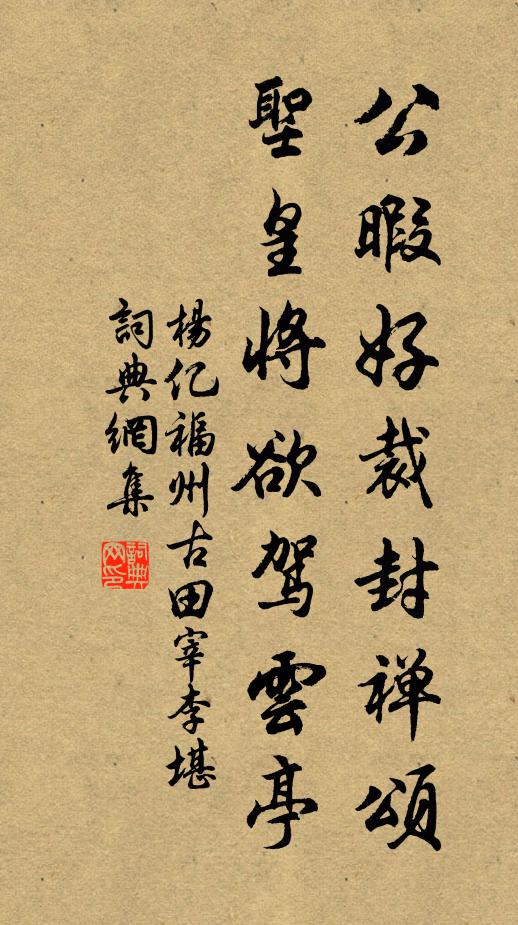 公暇好裁封禅頌
聖皇將欲駕雲亭
楊亿福州古田宰李堪
詞典網集
詞典网印